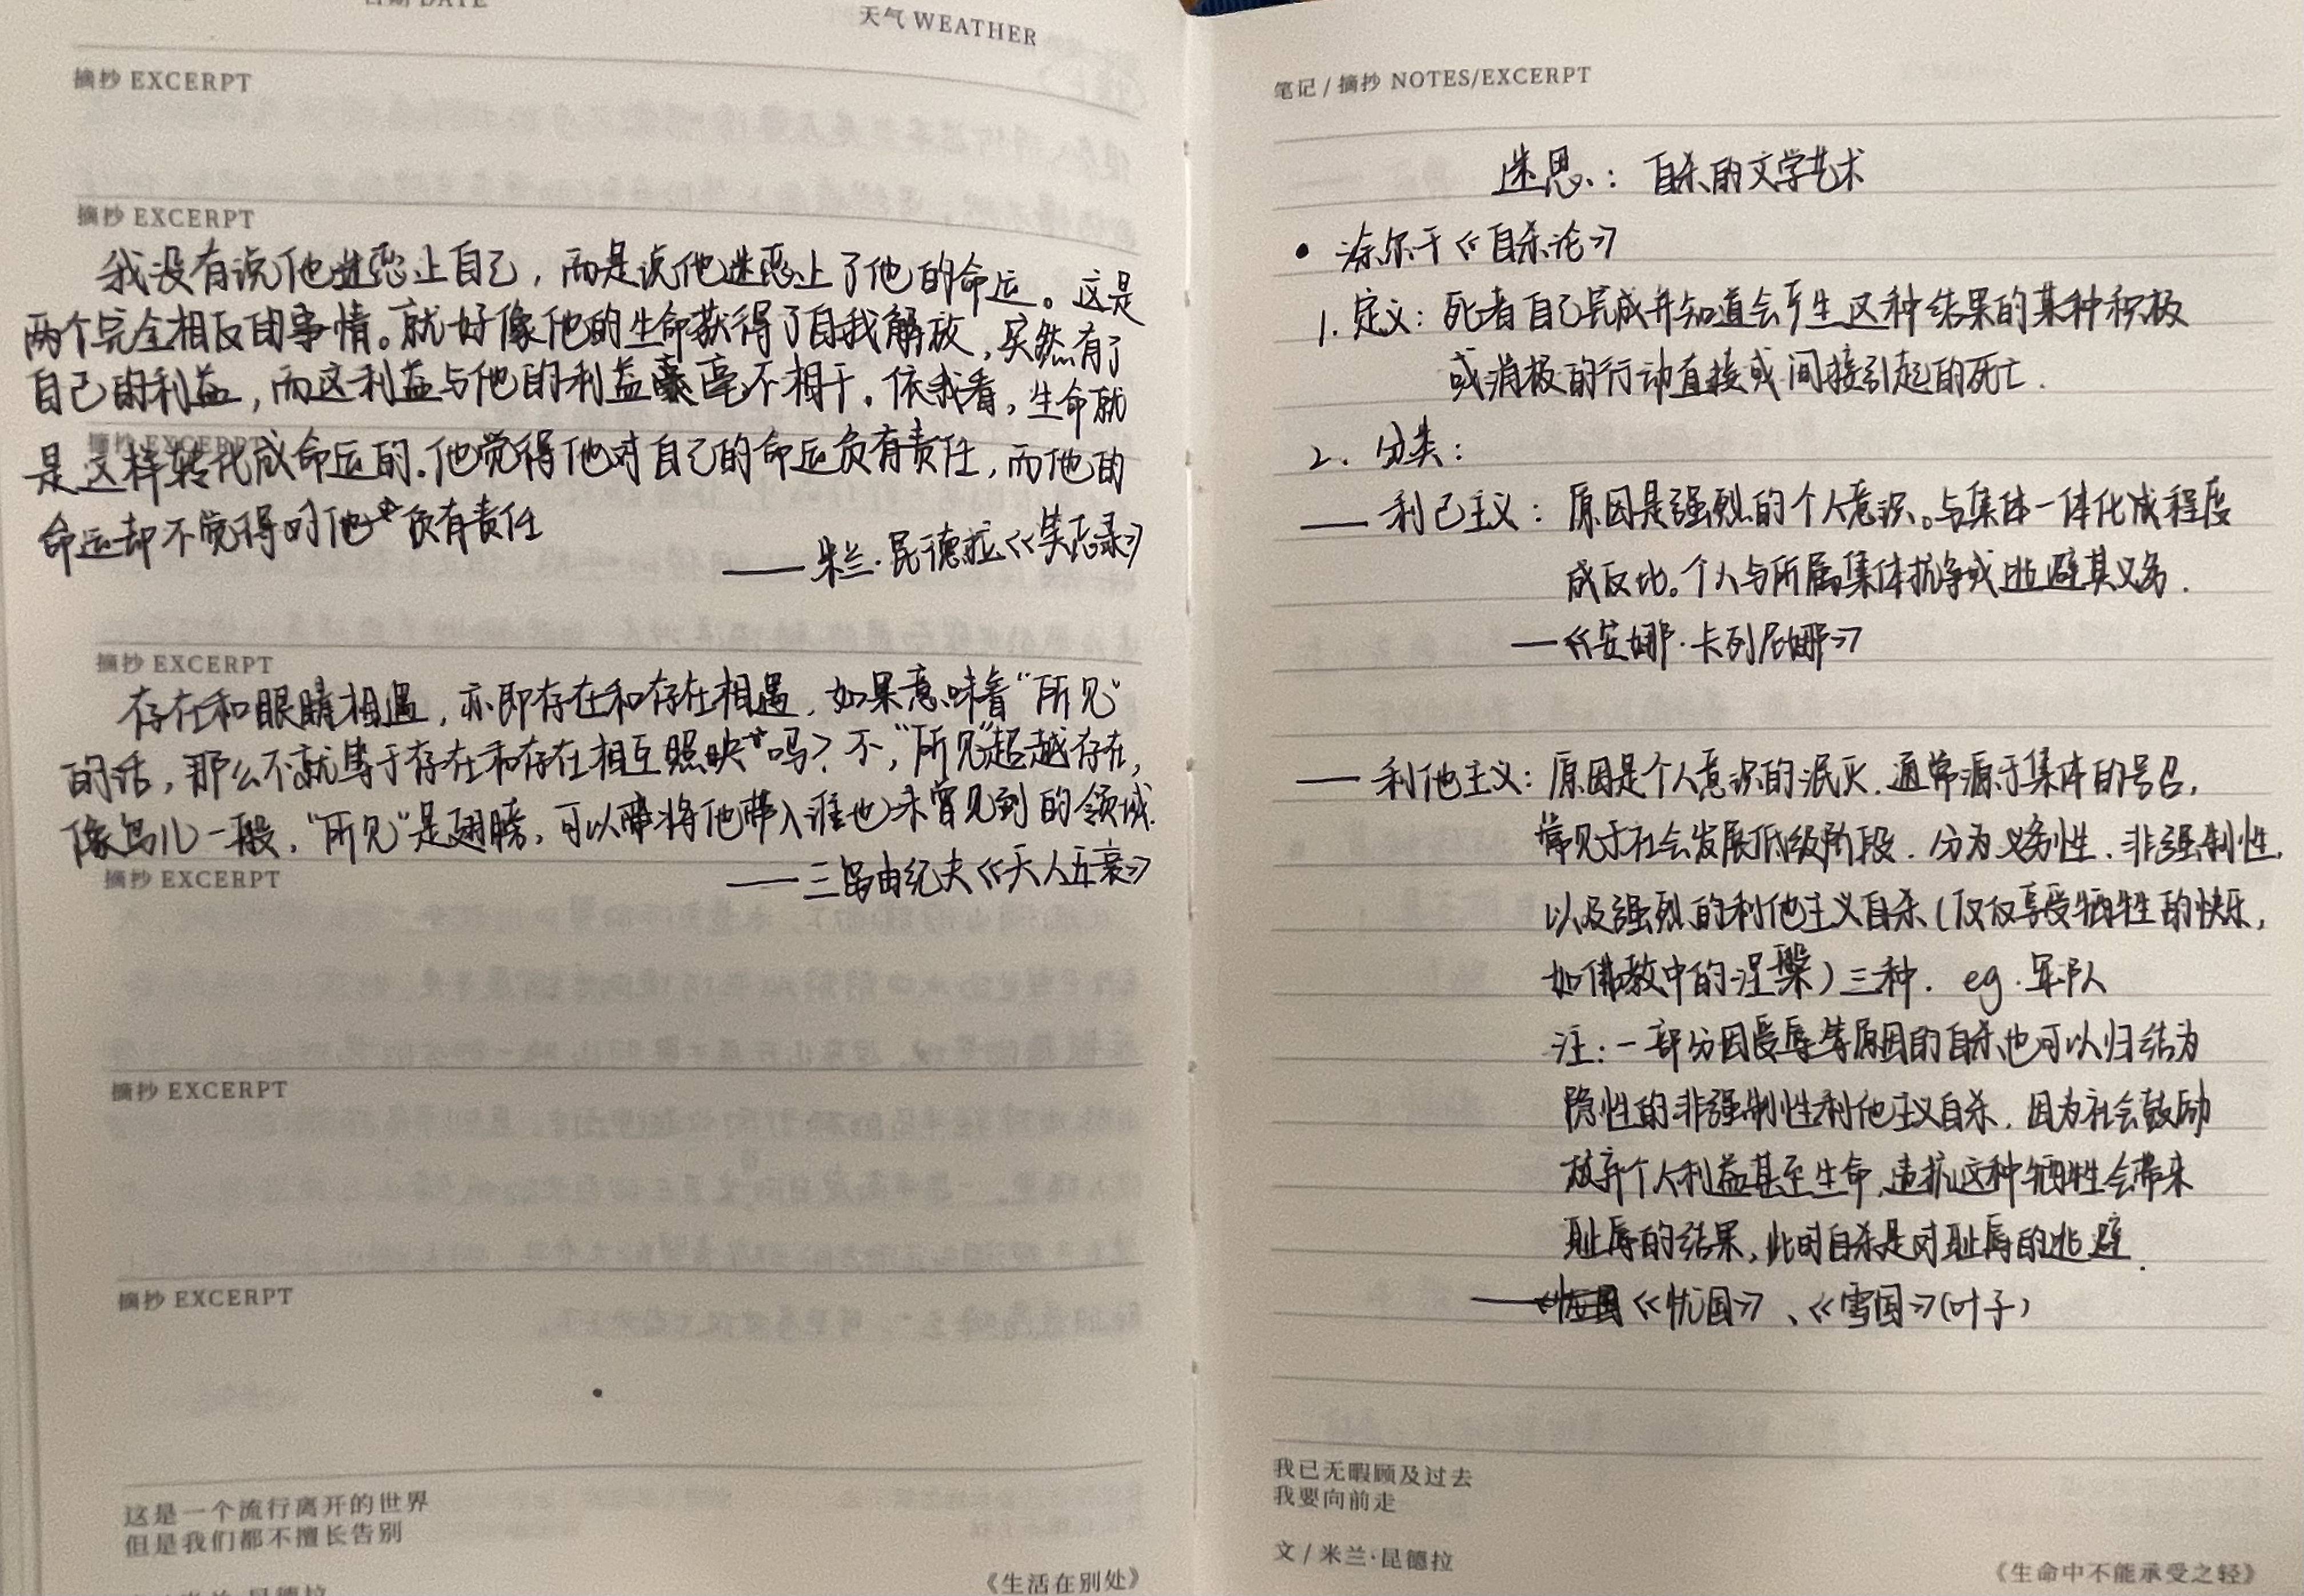 天气 WEATHER
摘抄 EXCERPT
摘抄 EXCERPT
我没有说他迷恋上自己，而是说他迷恋上了他的命运。这是
两个完全相反的事情。就好像他的生命获得了自我解放，突然有了
自己的利益，而这利益与他的利益毫不相干。依我看，生命就
摘抄 EXCERPT
是这样转化成命运的．他觉得他对自己的命运负有责任，而他的
命运却不觉得对他负有责任
——米兰·昆德拉《笑忘录》
摘抄 EXCERPT
存在和眼睛相遇，亦即存在和存在相遇．如果意味着“所见”
的话，那么不就等于存在和存在相互照映吗？不，“所见”超越存在，
像鸟儿一般．“所见”是翅膀，可以将他带入谁也未曾见到的领域．
——三岛由纪夫《天人五衰》
摘抄 EXCERPT
摘抄 EXCERPT
摘抄 EXCERPT
这是一个流行离开的世界
但是我们都不擅长告别
《生活在别处》
笔记 / 摘抄 NOTES/EXCERPT
迷思：自杀的文学艺术
• 涂尔干《自杀论》
1. 定义：死者自己完成并知道会产生这种结果的某种积极
或消极的行动直接或间接引起的死亡．
2. 分类：
—— 利己主义：原因是强烈的个人意识。与集体一体化成程度
成反比。个人与所属集体抗争或逃避其义务．
—《安娜·卡列尼娜》
—— 利他主义：原因是个人意识的泯灭．通常源于集体的号召，
常见于社会发展低级阶段．分为义务性、非强制性，
以及强烈的利他主义自杀（仅仅享受牺牲的快乐，
如佛教中的涅槃）三种．eg．军队
注：一部分因受辱等原因的自杀也可以归结为
隐性的非强制性利他主义自杀．因为社会鼓励
放弃个人利益甚至生命，违抗这种牺牲会带来
耻辱的结果，此时自杀是对耻辱的逃避．
——《忧国》、《雪国》（叶子）
我已无暇顾及过去
我要向前走
文 / 米兰·昆德拉
《生命中不能承受之轻》